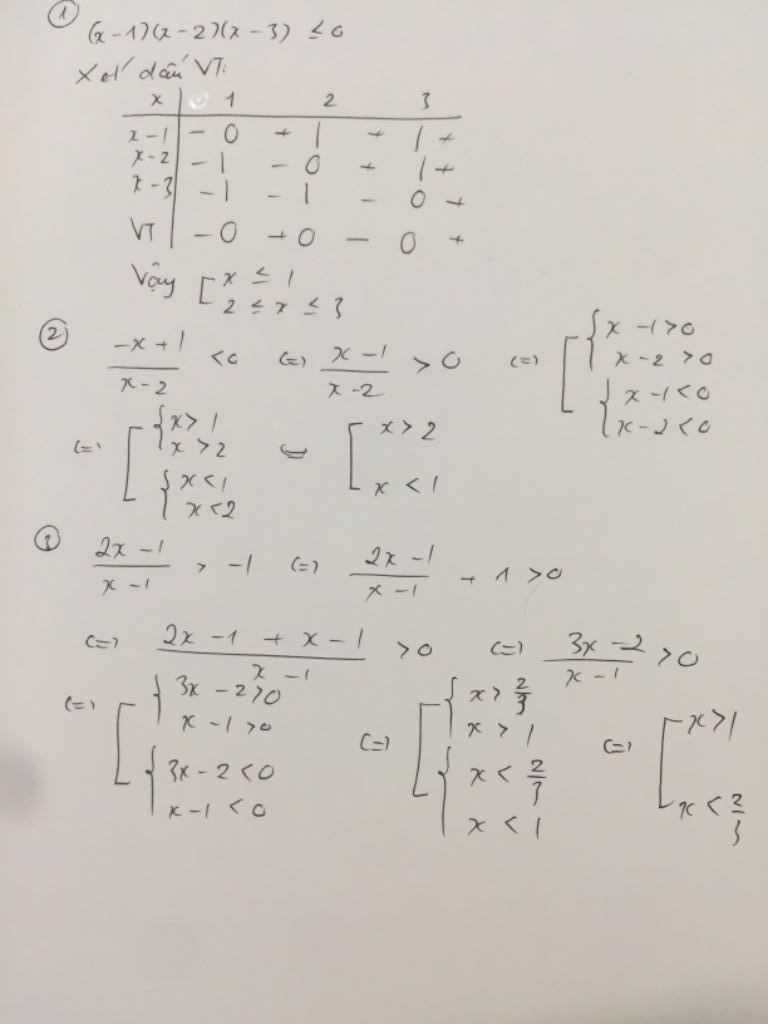 ① (x-1)(x-2)(x-3) ≤ 0
Xét dấu VT:
x | 1 2 3
x-1 | - 0 + | + | +
x-2 | - | - 0 + | +
x-3 | - | - | - 0 +
VT | - 0 + 0 - 0 +
Vậy [ x ≤ 1
2 ≤ x ≤ 3
② (-x+1)/(x-2) <0 (=) (x-1)/(x-2) > 0 (=) [ { x-1>0
x-2 >0
{ x-1<0
x-2<0
(=) [ { x>1 [ x>2
x>2
{ x<1 x<1
x<2
③ (2x-1)/(x-1) > -1 (=) (2x-1)/(x-1) + 1 >0
(=) (2x-1+x-1)/(x-1) >0 (=) (3x-2)/(x-1) >0
(=) [ { 3x-2>0 (=) [ { x>2/3 (=) [ x>1
x-1>0 x>1
{ 3x-2<0 { x<2/3 x<2/3
x-1<0 x<1